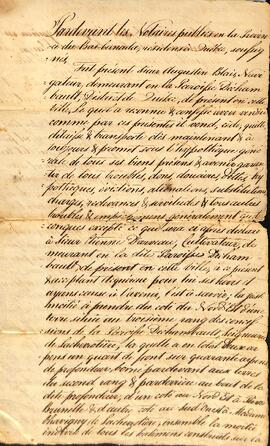 Pardevant les Notaires publics en la Provin-
ce du Bas Canada, résidens à Québec, soussig-
nés,
Fut présent Sieur Augustin Blais, Navi-
gateur, demeurant en la Paroisse Descham-
bault, District de Québec, de présent en cette
ville, lequel a reconnu & confessé avoir vendu
comme par ces présentes il vend, cède, quitte,
délaisse & transporte dès maintenant & à
toujours & promet sous l'hypothèque géné-
rale de tous ses biens présens & avenir garan-
tir de tous troubles, dons, douaires, dettes, hy-
pothèques, évictions, aliénations, substitutions
charges, redevances & servitudes & tous autres
troubles & généralement quel-
conques excepté ce que sera ci après déduit
à Sieur Etienne Cultivateur, de-
meurant en la dite Paroisse Descham-
bault, de présent en cette ville, à ce présent
& acceptant acquéreur pour lui ses hoirs &
ayans cause à l'avenir, c'est à savoir, la juste
moitié à prendre du côté du Nord Est d'une
terre située au troisième rang des conces-
sions de la Paroisse Deschambault, Seigneurie
de laquelle a en total deux ar-
pens un quart de front sur quarante arpens
de profondeur, borné pardevant aux terres
du second rang & parderrière au bout de la
dite profondeur, d'un côté au Nord Est à
& d'autre côté au Sud Ouest à
ensemble la moitié
de tous les bâtimens